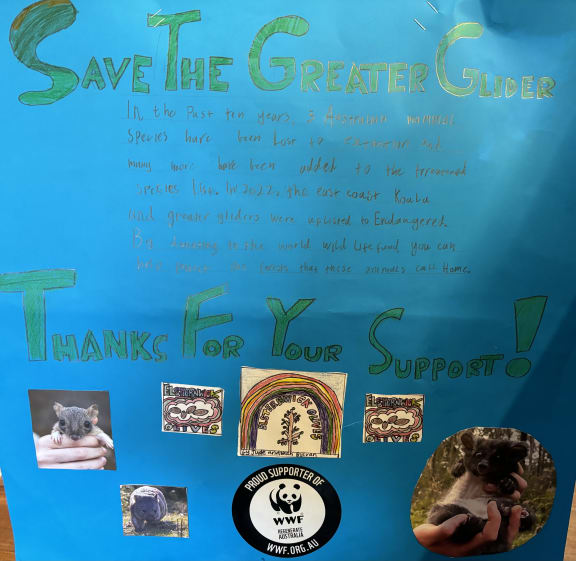 SAVE THE GREATER GLIDER
In the past ten years, 3 Australian
species have been lost to
many more have been added to the threatened
species list. In 2022, the east coast Koala
and greater gliders were uplisted to Endangered.
By donating to the world wild life fund, you can
the forests that these animals call Home.
THANKS FOR YOUR SUPPORT!
ELSTERNWICK
ELSTERNWICK
PROUD SUPPORTER OF
WWF
REGENERATE
AUSTRALIA
WWF.ORG.AU